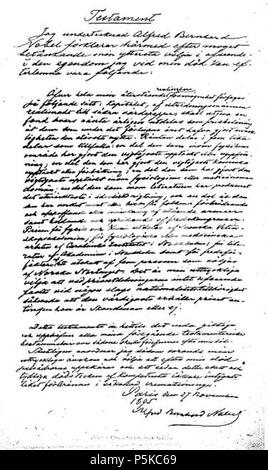 Testament
Jag undertecknad Alfred Bernhard
Nobel förklarar härmed efter moget
betänkande min yttersta vilja i afseende
å den egendom jag vid min död kan ef-
terlemna vara följande:
Öfver hela min återstående förmögenhet förfoges
på följande sätt: kapitalet, af utredningsmännen
realiseradt till säkra värdepapper, skall utgöra en
fond hvars ränta årligen utdelas som prisbelöning
åt dem som under det förlupna året hafva gjort mensk-
ligheten den största nytta. Räntan delas i fem lika
delar som tillfalla: en del den som inom fysikens
område har gjort den vigtigaste upptäckt eller uppfin-
ning; en del den som har gjort den vigtigaste kemiska
upptäckt eller förbättring; en del den som har gjort den
vigtigaste upptäckt inom fysiologiens eller medicinens
domän; en del den som inom litteraturen har producerat
det i idealisk rigtning; och en del åt den
som har verkat mest eller best för folkens förbrödrande
och afskaffande eller minskning af stående armeer
samt bildande och spridande af fredskongresser.
Prisen för fysik och kemi utdelas af Svenska Veten-
skapsakademien; för fysiologiska eller medicinska
arbeten af Carolinska institutet i Stockholm; för lit-
teratur af Akademien i Stockholm samt för fredsför-
fäktare af ett utskott af fem personer som väljas
af Norska Stortinget. Det är min uttryckliga
vilja att vid prisutdelningarne intet afseende
fästes vid någon slags nationalitetstillhörighet
sålunda att den värdigaste erhåller priset an-
tingen han är Skandinav eller ej.
Detta testamente är hittills det enda giltiga
och upphäfver alla mina föregående testamentariska
bestämmelser om sådana skulle förefinnas efter min död.
Slutligen anordnar jag såsom varande min
uttryckliga önskan och vilja att efter min död
pulsådrorna uppskäras och att sedan detta skett och
tydliga dödstecken af kompetenta läkare intygats
liket förbrännes i såkallad crematoriumugn.
Paris den 27 November
1895
Alfred Bernhard Nobel